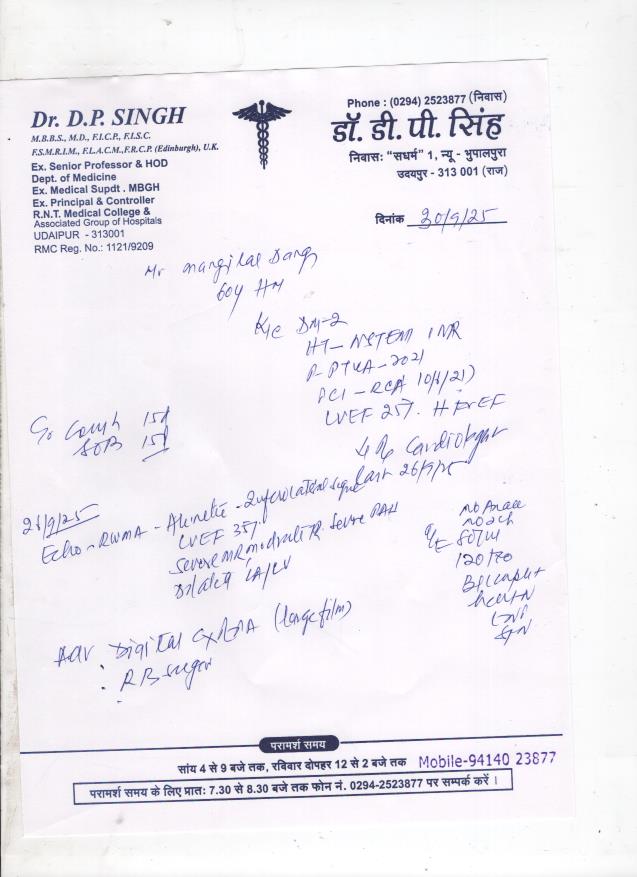 Dr. D.P. SINGH
M.B.B.S., M.D., F.I.C.P., F.I.S.C.
F.S.M.R.I.M., F.L.A.C.M.,F.R.C.P. (Edinburgh), U.K.
Ex. Senior Professor & HOD
Dept. of Medicine
Ex. Medical Supdt . MBGH
Ex. Principal & Controller
R.N.T. Medical College &
Associated Group of Hospitals
UDAIPUR - 313001
RMC Reg. No.: 1121/9209
Phone : (0294) 2523877 (निवास)
डॉ. डी. पी. सिंह
निवास: “सधर्म” 1, न्यू - भुपालपुरा
उदयपुर - 313 001 (राज)
दिनांक 30/9/25
Mr Mangilal Dangi
60y HM
K/c DM-2
HT- NSTEMI INR
P-PTCA-2021
PCI - RCA 10/6/21)
LVEF 25%. HFrEF
Cardiologist
last 26/9/25
C/o Cough 15d
SOB 15d
26/9/25
Echo - RWMA - Akinetic - Inferolateral
LVEF 35%.
Severe MR moderate TR Severe PAH
Dilated LA/LV
80/M
120/70
Adv Digital CXR PA (large film)
. RB Sugar
परामर्श समय
सांय 4 से 9 बजे तक, रविवार दोपहर 12 से 2 बजे तक Mobile-94140 23877
परामर्श समय के लिए प्रातः 7.30 से 8.30 बजे तक फोन नं. 0294-2523877 पर सम्पर्क करें ।